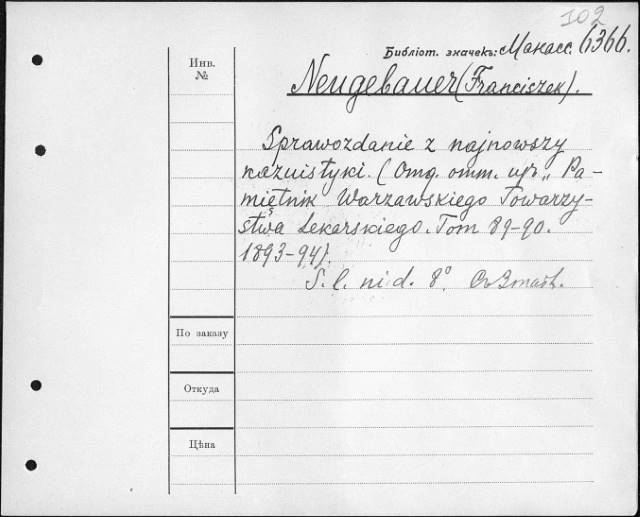 102
Библіот. значекъ: Макасс. 6366.
Инв.
№
Neugebauer (Franciszek).
Sprawozdanie z najnowszy
kazuistyki. (Отд. отт. изъ „Pa-
miętnik Warzawskiego Towarzy-
stwa Lekarskiego. Tom 89-90.
1893-94).
S. l. ni d. 8°
По заказу
Откуда
Цѣна